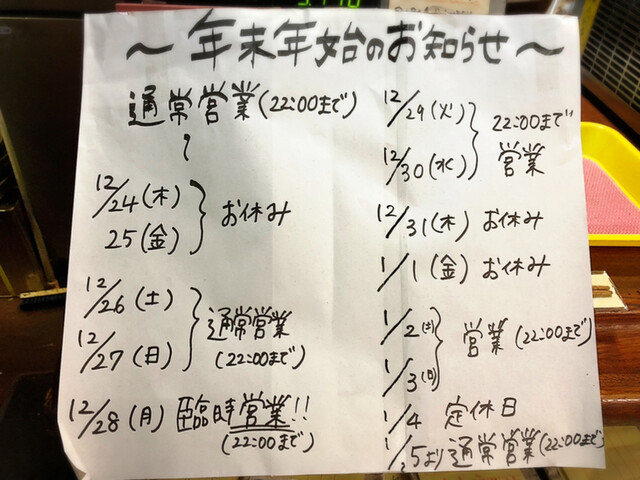 ～年末年始のお知らせ～
通常営業(22:00まで)
〜
12/24(木)
25(金)
お休み
12/26(土)
12/27(日)
通常営業
(22:00まで)
12/28(月) 臨時営業!!
(22:00まで)
12/29(火)
12/30(水)
22:00まで
営業
12/31(木) お休み
1/1(金) お休み
1/2(土)
1/3(日)
営業(22:00まで)
1/4 定休日
1/5より通常営業(22:00まで)